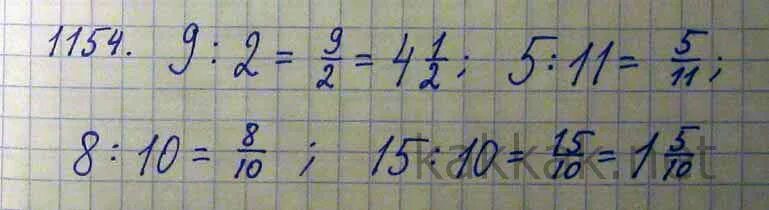 1154. 9 : 2 = 9/2 = 4 1/2; 5 : 11 = 5/11;
8 : 10 = 8/10 ; 15 : 10 = 15/10 = 1 5/10
kakkak.net